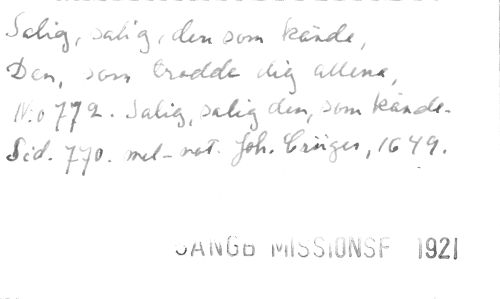 Salig, salig, den som kände,
Den, som trodde dig allena,
N:o 772. Salig, salig den, som kände.
Sid. 770. mel-not. Joh. Crüger, 1649.
SANGB MISSIONSF 1921